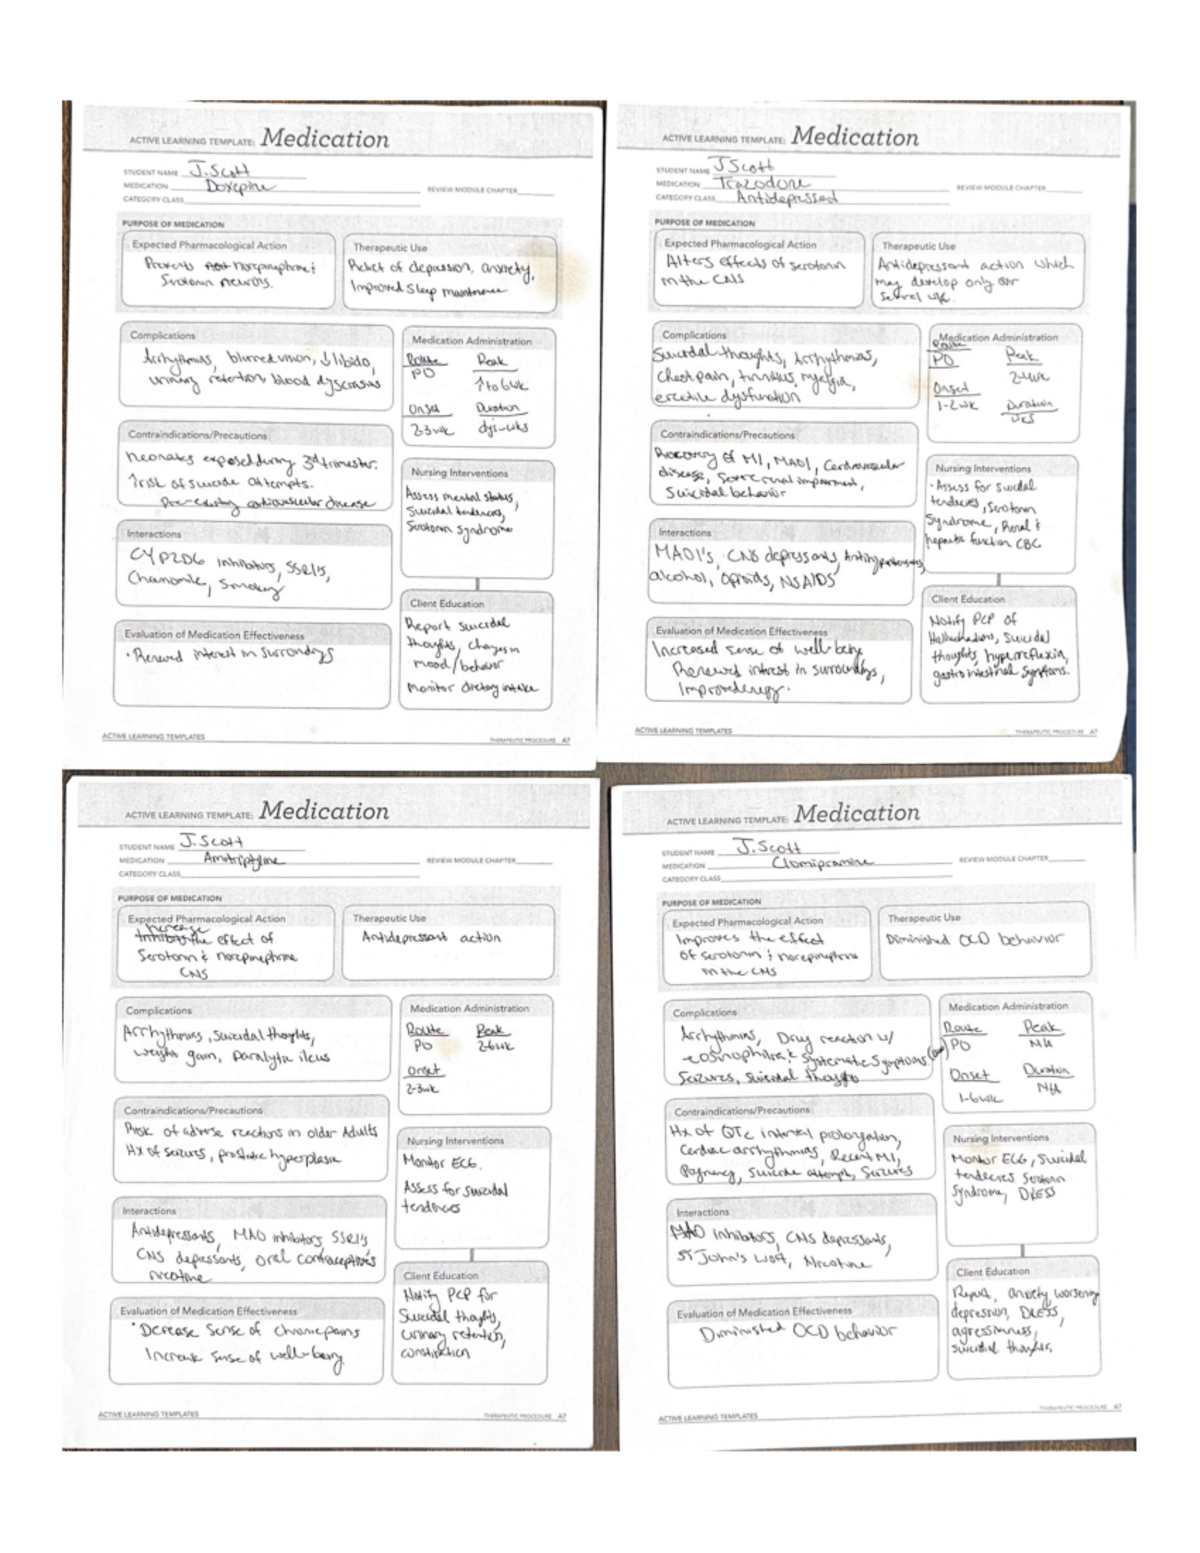 ACTIVE LEARNING TEMPLATE: Medication
STUDENT NAME J. Scott
MEDICATION Doxepine REVIEW MODULE CHAPTER
CATEGORY CLASS
PURPOSE OF MEDICATION
Expected Pharmacological Action
Prevents norepinephrine &
Serotonin neurons.
Therapeutic Use
Relief of depression, anxiety,
Improved Sleep maintenence
Complications
Arrhythmias, blurred vision, ↓ libido,
urinary retention, blood dyscrasias
Medication Administration
Route Peak
PO ↑ to 6wk
Onset Duration
2-3wk dys-wks
Contraindications/Precautions
neonates exposed during 3rd trimester.
↑ risk of suicide attempts.
Pre-existing cardiovascular disease
Nursing Interventions
Assess mental status,
Suicidal tendencies,
Serotonin Syndrome
Interactions
CYP2D6 inhibitors, SSRI's,
Chamomile, Smoking
Client Education
Report suicidal
thoughts, changes in
mood/behavior
Monitor dietary intake
Evaluation of Medication Effectiveness
• Renewed interest in Surrondgs
ACTIVE LEARNING TEMPLATES THERAPEUTIC PROCEDURE A7
ACTIVE LEARNING TEMPLATE: Medication
STUDENT NAME J Scott
MEDICATION Trazodone REVIEW MODULE CHAPTER
CATEGORY CLASS Antidepressed
PURPOSE OF MEDICATION
Expected Pharmacological Action
Alters effects of serotonin
in the CNS
Therapeutic Use
Antidepressant action which
may develop only over
several wk.
Complications
Suicidal thoughts, Arrhythmias,
Chest pain, tinnitus, myalgia,
erectile dysfunction
Medication Administration
Route
PO Peak
2-4wk
Onset
1-2wk Duration
wks
Contraindications/Precautions
Recovery of MI, MAOI, Cardiovascular
disease, Severe renal impairment,
Suicidal behavior
Nursing Interventions
• Assess for suicidal
tendencies, Serotonin
Syndrome, Renal &
hepatic function CBC
Interactions
MAOI's, CNS depressants, Antihypertensives,
alcohol, Opioids, NSAIDS
Client Education
Notify PCP of
Hallucinations, suicidal
thoughts, hyperreflexia,
gastrointestinal symptoms.
Evaluation of Medication Effectiveness
Increased sense of well-being
Renewed interest in surroundgs,
Improved energy.
ACTIVE LEARNING TEMPLATES THERAPEUTIC PROCEDURE A7
ACTIVE LEARNING TEMPLATE: Medication
STUDENT NAME J. Scott
MEDICATION Amitriptyline REVIEW MODULE CHAPTER
CATEGORY CLASS
PURPOSE OF MEDICATION
Expected Pharmacological Action
Increase
the effect of
Serotonin & norepinephrine
CNS
Therapeutic Use
Antidepressant action
Complications
Arrhythmias, Suicidal thoughts,
weight gain, paralytic ileus
Medication Administration
Route Peak
PO 2-6wk
Onset
2-3wk
Contraindications/Precautions
Risk of adverse reactions in older Adults
Hx of seizures, prostatic hyperplasia
Nursing Interventions
Monitor ECG.
Assess for suicidal
tendencies
Interactions
Antidepressants, MAO inhibitors, SSRI's
CNS depressants, oral contraceptives
nicotine
Client Education
Notify PCP for
Suicidal thoughts,
urinary retention,
constipation
Evaluation of Medication Effectiveness
• Decrease Sense of chronic pains
Increase Sense of well-being
ACTIVE LEARNING TEMPLATES THERAPEUTIC PROCEDURE A7
ACTIVE LEARNING TEMPLATE: Medication
STUDENT NAME J. Scott
MEDICATION Clomipramine REVIEW MODULE CHAPTER
CATEGORY CLASS
PURPOSE OF MEDICATION
Expected Pharmacological Action
Improves the effect
of serotonin & norepinephrine
in the CNS
Therapeutic Use
Diminished OCD behavior
Complications
Arrhythmias, Drug reaction w/
eosinophilia & systematic Symptoms
Seizures, Suicidal thoughts
Medication Administration
Route Peak
PO N/A
Onset Duration
1-6wk N/A
Contraindications/Precautions
Hx of QTc interval prolongation,
Cardiac arrhythmias, Recent MI,
Pregnancy, Suicide attempt, Seizures
Nursing Interventions
Monitor ECG, Suicidal
tendencies Serotonin
Syndrome, DRESS
Interactions
MAO inhibitors, CNS depressants,
St John's Wort, Nicotine
Client Education
Report, anxiety worsening
depression, DRESS,
agressivness,
suicidal thoughts.
Evaluation of Medication Effectiveness
Diminished OCD behavior
ACTIVE LEARNING TEMPLATES THERAPEUTIC PROCEDURE A7